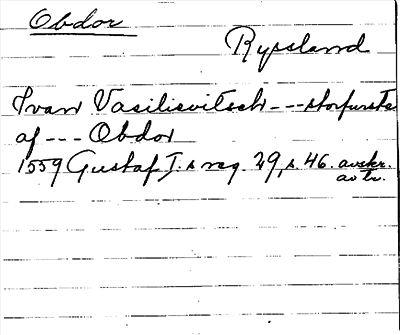 Obdor
Ryssland
Ivan Vasilievitsch --- storfurste
af --- Obdor
1559 Gustaf I.s reg. 29, s. 46. avskr.
av tr.